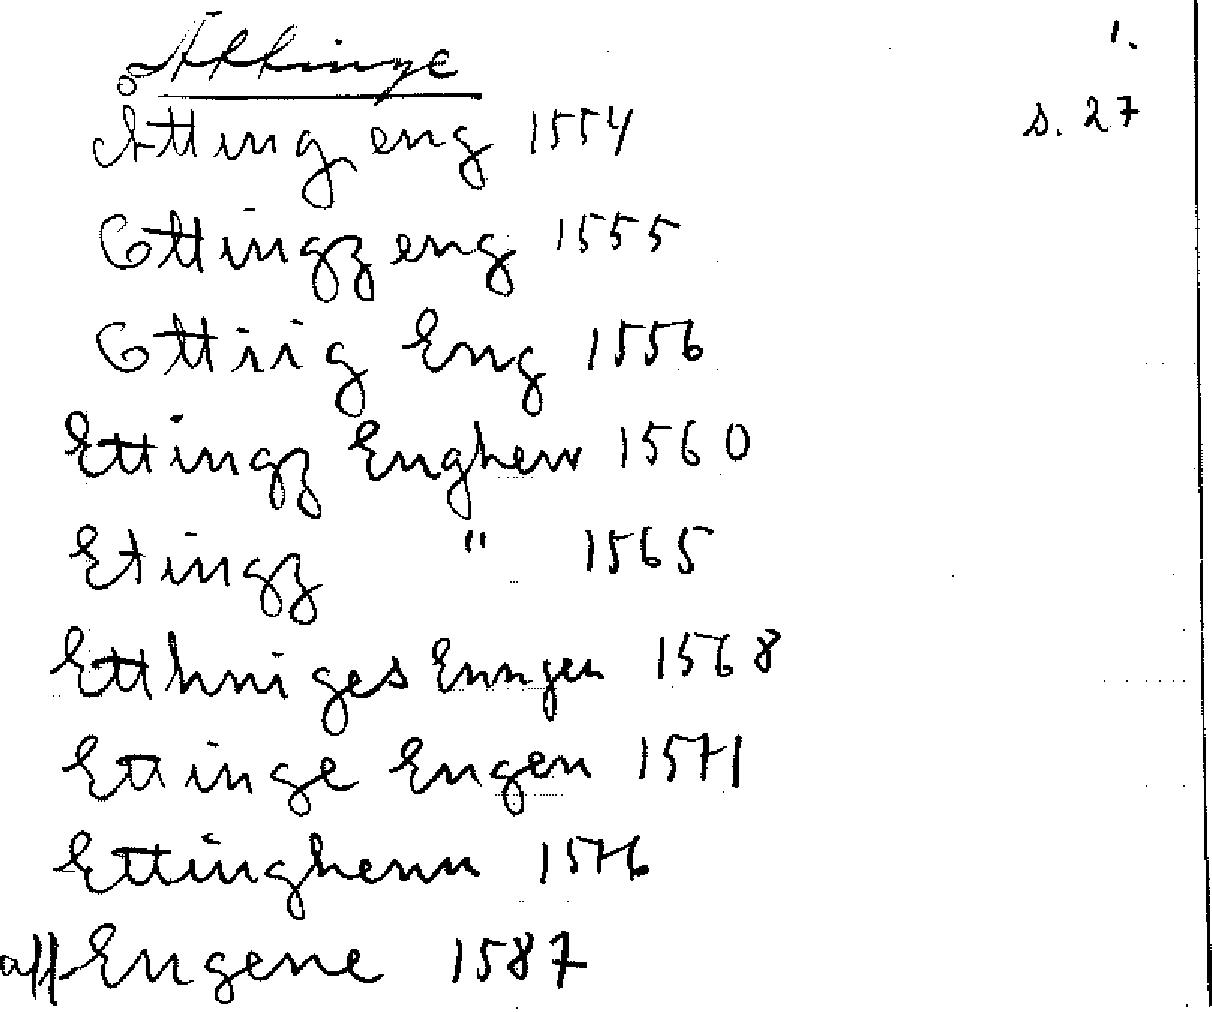 Attinge 1.
Atting eng 1554 s. 27
Ottingz eng 1555
Ottiig Eng 1556
Ettingz Enghenn 1560
Etingz " 1565
Etthniges Enngen 1568
Ettinge Engen 1571
Ettinghenn 1576
aff Engene 1587